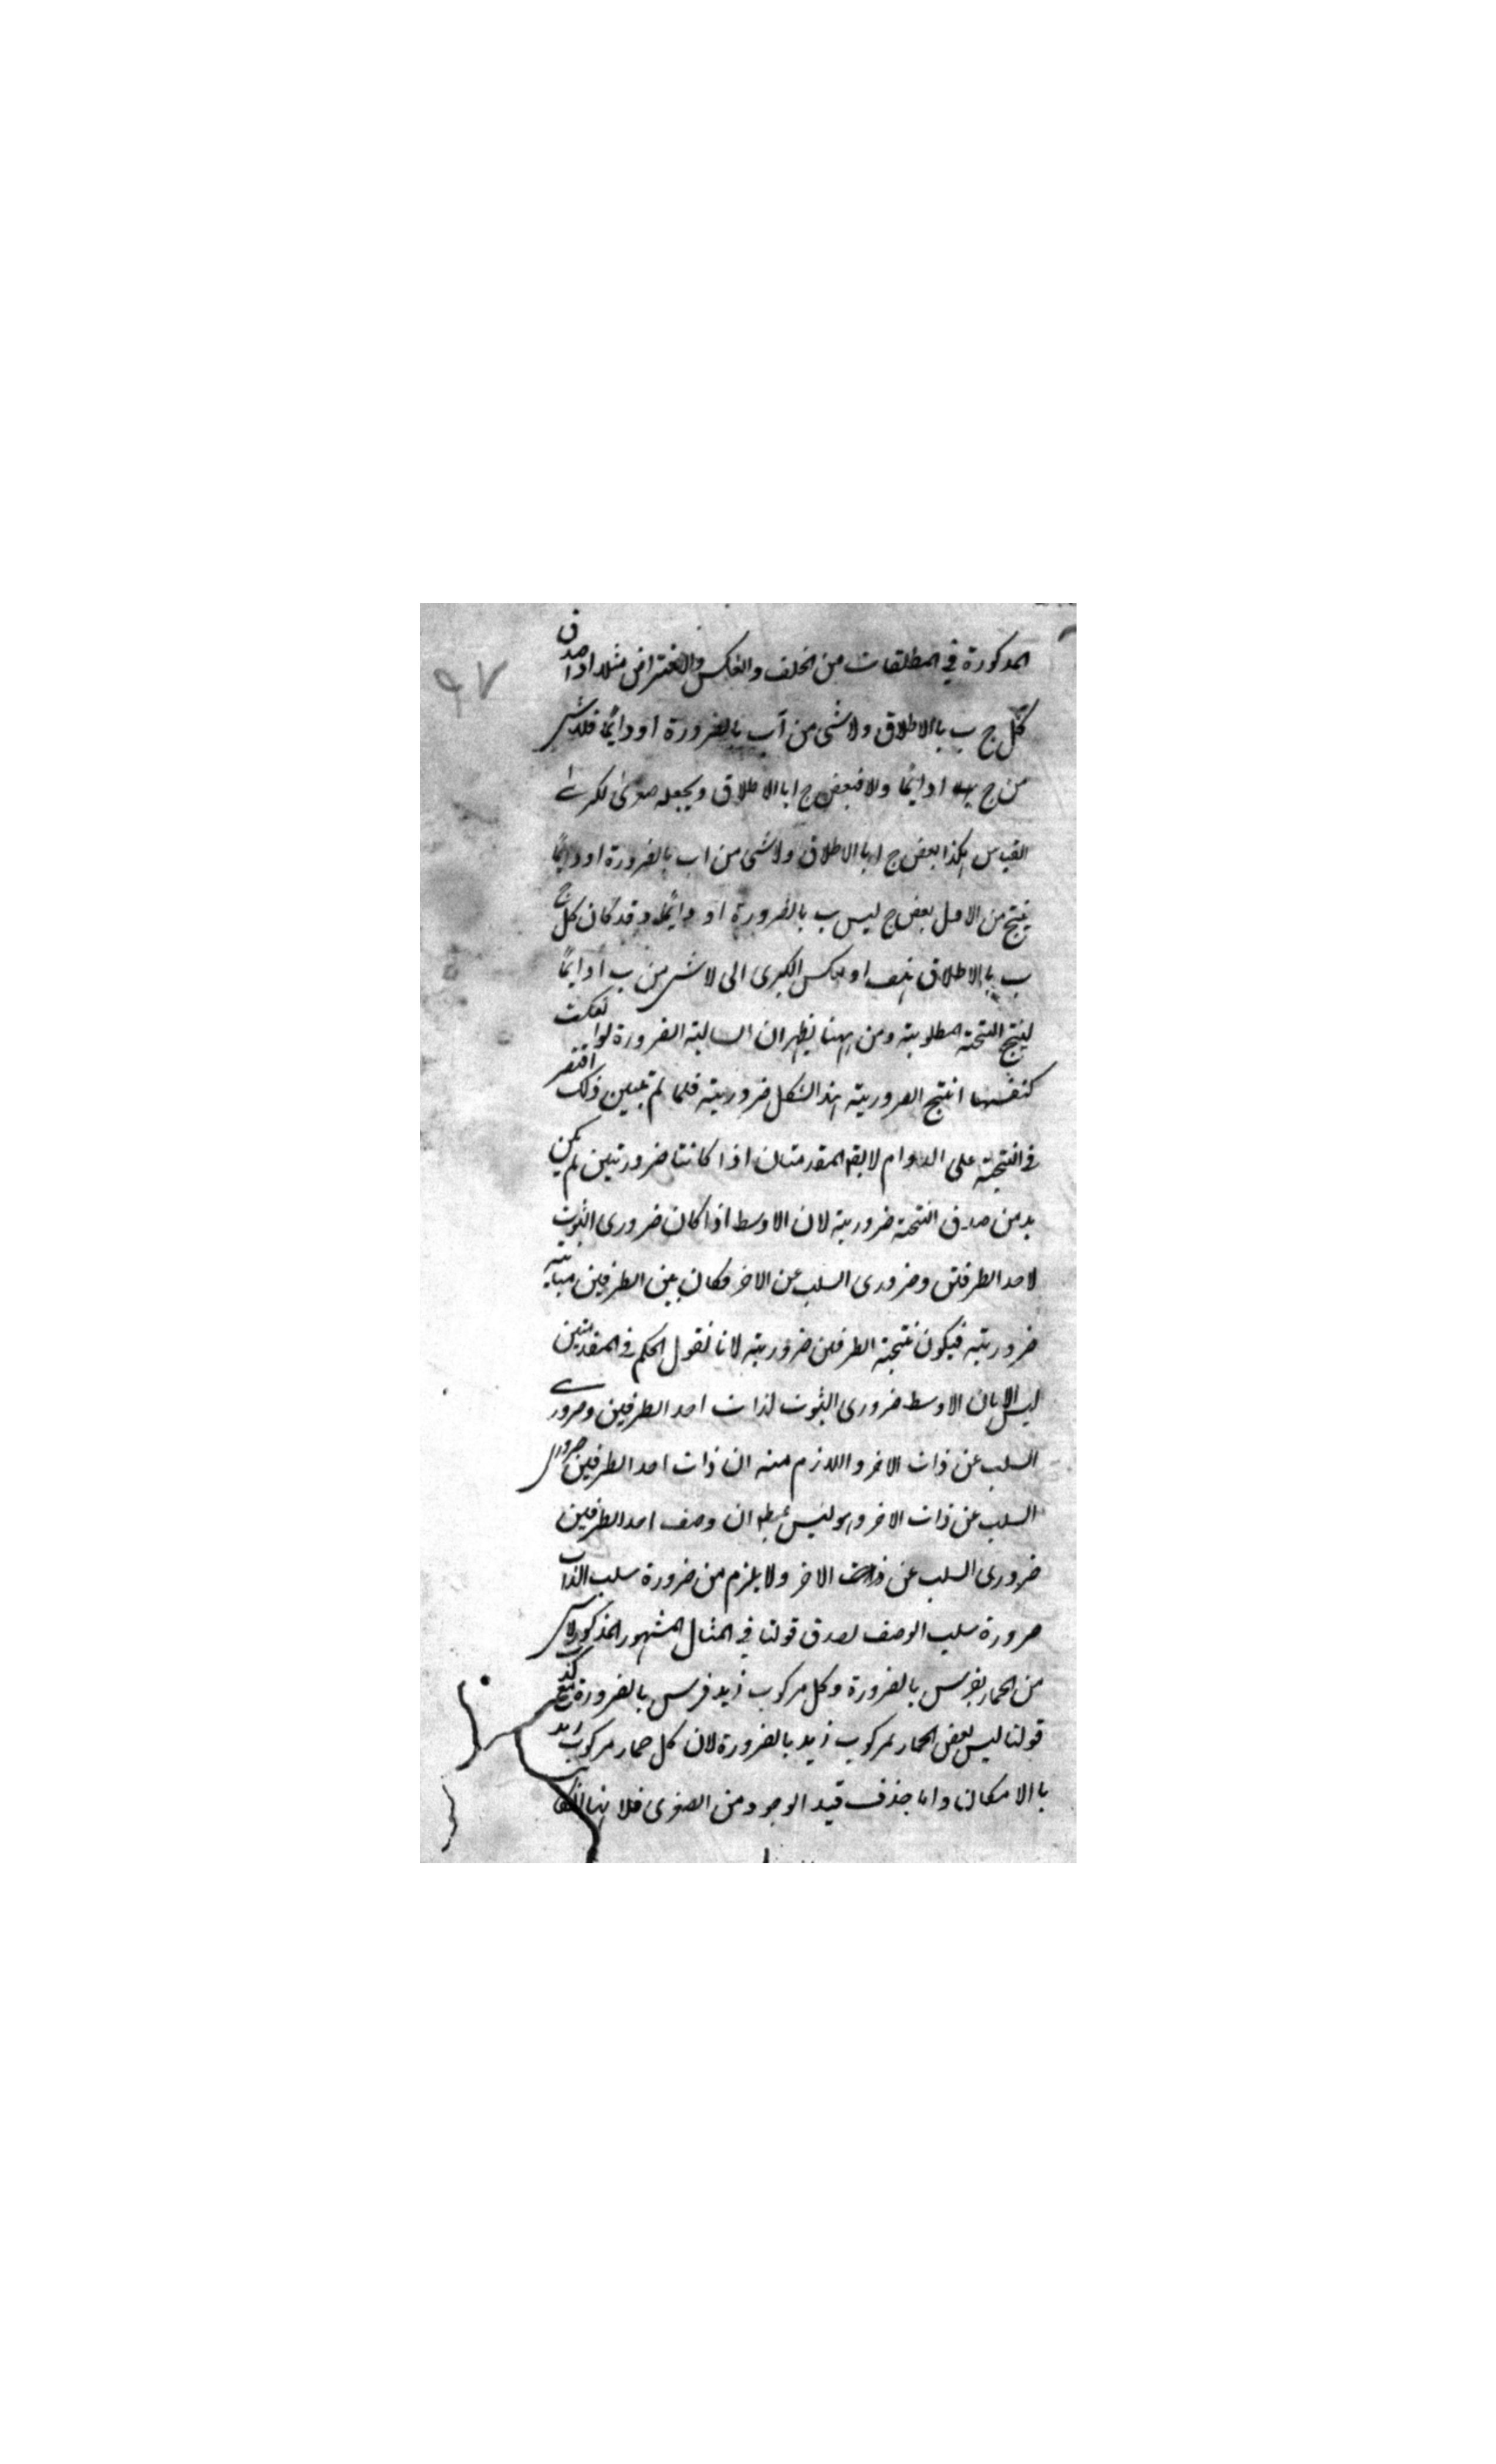 المذكورة في المطلقات من الخلف والعكس والافتراض مثلا اذا صدق
كل ج ب بالاطلاق ولا شئ من آب بالضرورة او دايمًا فلا شى
من ج ا دايمًا والا فبعض ج ا بالاطلاق ويجعله صغرى لكرى
القياس هكذا بعض ج ا بالاطلاق ولا شئ من اب بالضرورة او دايمًا
ينتج من الاول بعض ج ليس ب بالضرورة او دايمًا وقد كان كل ج
ب بالاطلاق هف او بعكس الكبرى الى لا شى من ب ا دايمًا
لينتج النتيجة المطلوبة ومن ههنا يظهر ان السالبة الضرورة لو انعكست
كنفسها انتج الضرورية هذا الشكل ضرورية فلما لم تبين ذلك اقتصر
فى النتيجة على الدوام لا يقم المقدمتان اذا كانتا ضرورتين لم يكن
بد من صدق النتيجة ضرورية لان الاوسط اذا كان ضرورى الثبوت
لاحد الطرفين وضرورى السلب عن الاخر فكان بين الطرفين مباينة
ضرورية فيكون نتيجة الطرفين ضرورية لانا نقول الحكم فى المقدمتين
ليس الا بان الاوسط ضرورى الثبوت لذات احد الطرفين وضرورى
السلب عن ذات الاخر واللازم منه ان ذات احد الطرفين ضرورى
السلب عن ذات الاخر وهو ليس بمط ان وصف احد الطرفين
ضرورى السلب عن ذات الاخر ولا يلزم من ضرورة سلب الذات
ضرورة سلب الوصف لصدق قولنا في المثال المشهور المذكور لا شى
من الحمار بفرس بالضرورة وكل مركوب زيد فرس بالضرورة مع كذب
قولنا ليس بعض الحمار بمركوب زيد بالضرورة لان كل حمار مركوب زيد
بالامكان واما حذف قيد الوجود من الصغرى فلانها
٩٧